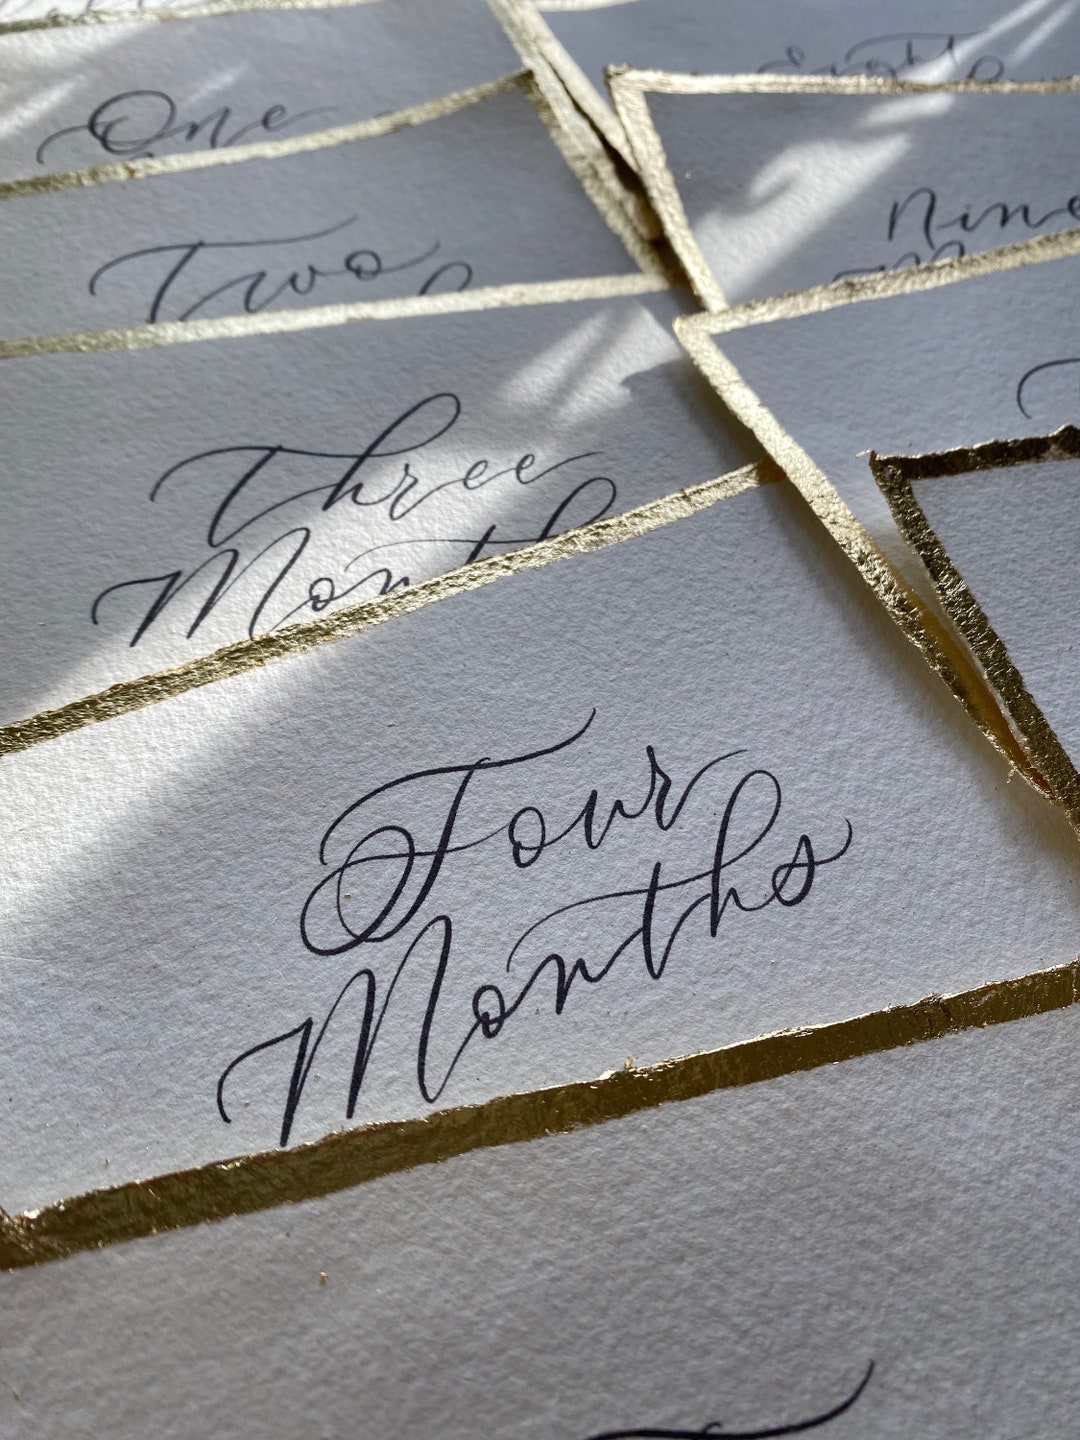 One
Two
Three
Mont
Four
Months
Eight
Nine